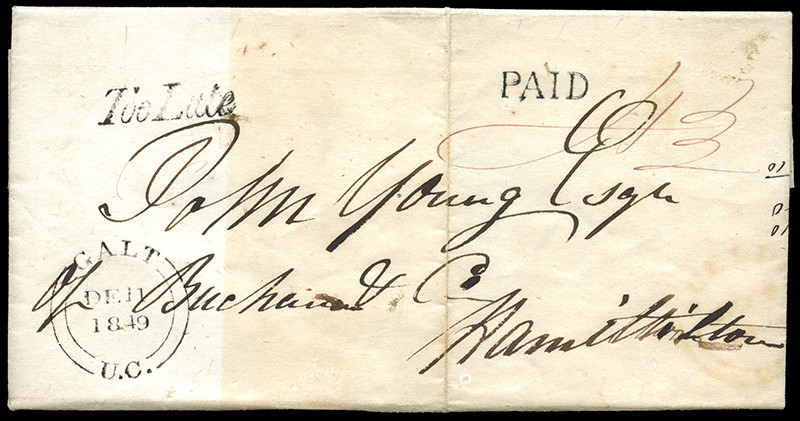 Too Late
PAID
John Young Esqr
GALT
DE 11
1849
U.C.
of Buchanan & Co
Hamilton